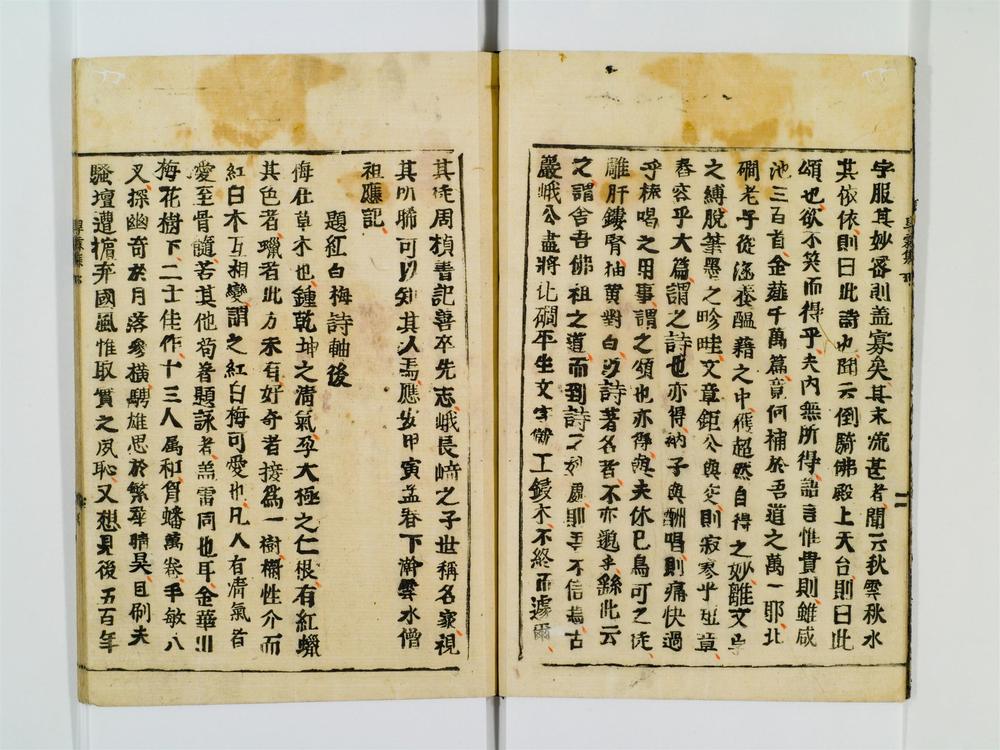 字服其妙密則蓋寡矣其末流甚者聞云秋雲秋水
其依依則曰此詩也聞云倒騎佛殿上天台則曰此
頌也欲不笑而得乎夫内無所得詣言惟貴則雖咸
池三百首金薤千萬篇竟何補於吾道之萬一耶北
磵老子從涵養醞藉之中穫超然自得之妙離文字
之縛脱筆墨之畛畦文章鉅公與交則寂寥乎短章
舂容乎大篇謂之詩也亦得衲子與酬唱則痛快過
乎棒喝之用事謂之頌也亦得與夫休已鳥可之徒
雕肝鏤腎抽黄對白以詩著名者不亦邈乎繇此云
之謂舍吾佛祖之道而到詩之妙處則吾不信蓋古
巖峨公盡將北磵平生文字命工鋟木不終而遽爾
其徒周楨書記善卒先志峨長﨑之子世稱名家視
其所聯可以知其人焉應安甲寅孟春下澣雲水僧
祖應記
題紅白梅詩軸後
梅在草木也鍾乾坤之清氣孕大極之仁根有紅蠟
其色者蠟者此方未有好奇者接爲一樹櫩性介而
紅白木互相變謂之紅白梅可愛也凡人有清氣者
愛至骨髓若其他苟着題詠者盖雷同也耳金華川
梅花樹下二士佳作十三人属和胷蟠萬卷手敏八
叉探幽奇於月落參横騁雄思於繁蕐晴昊且刷夫
騷壇遭擯弃國風惟取實之夙恥又想見後五百年